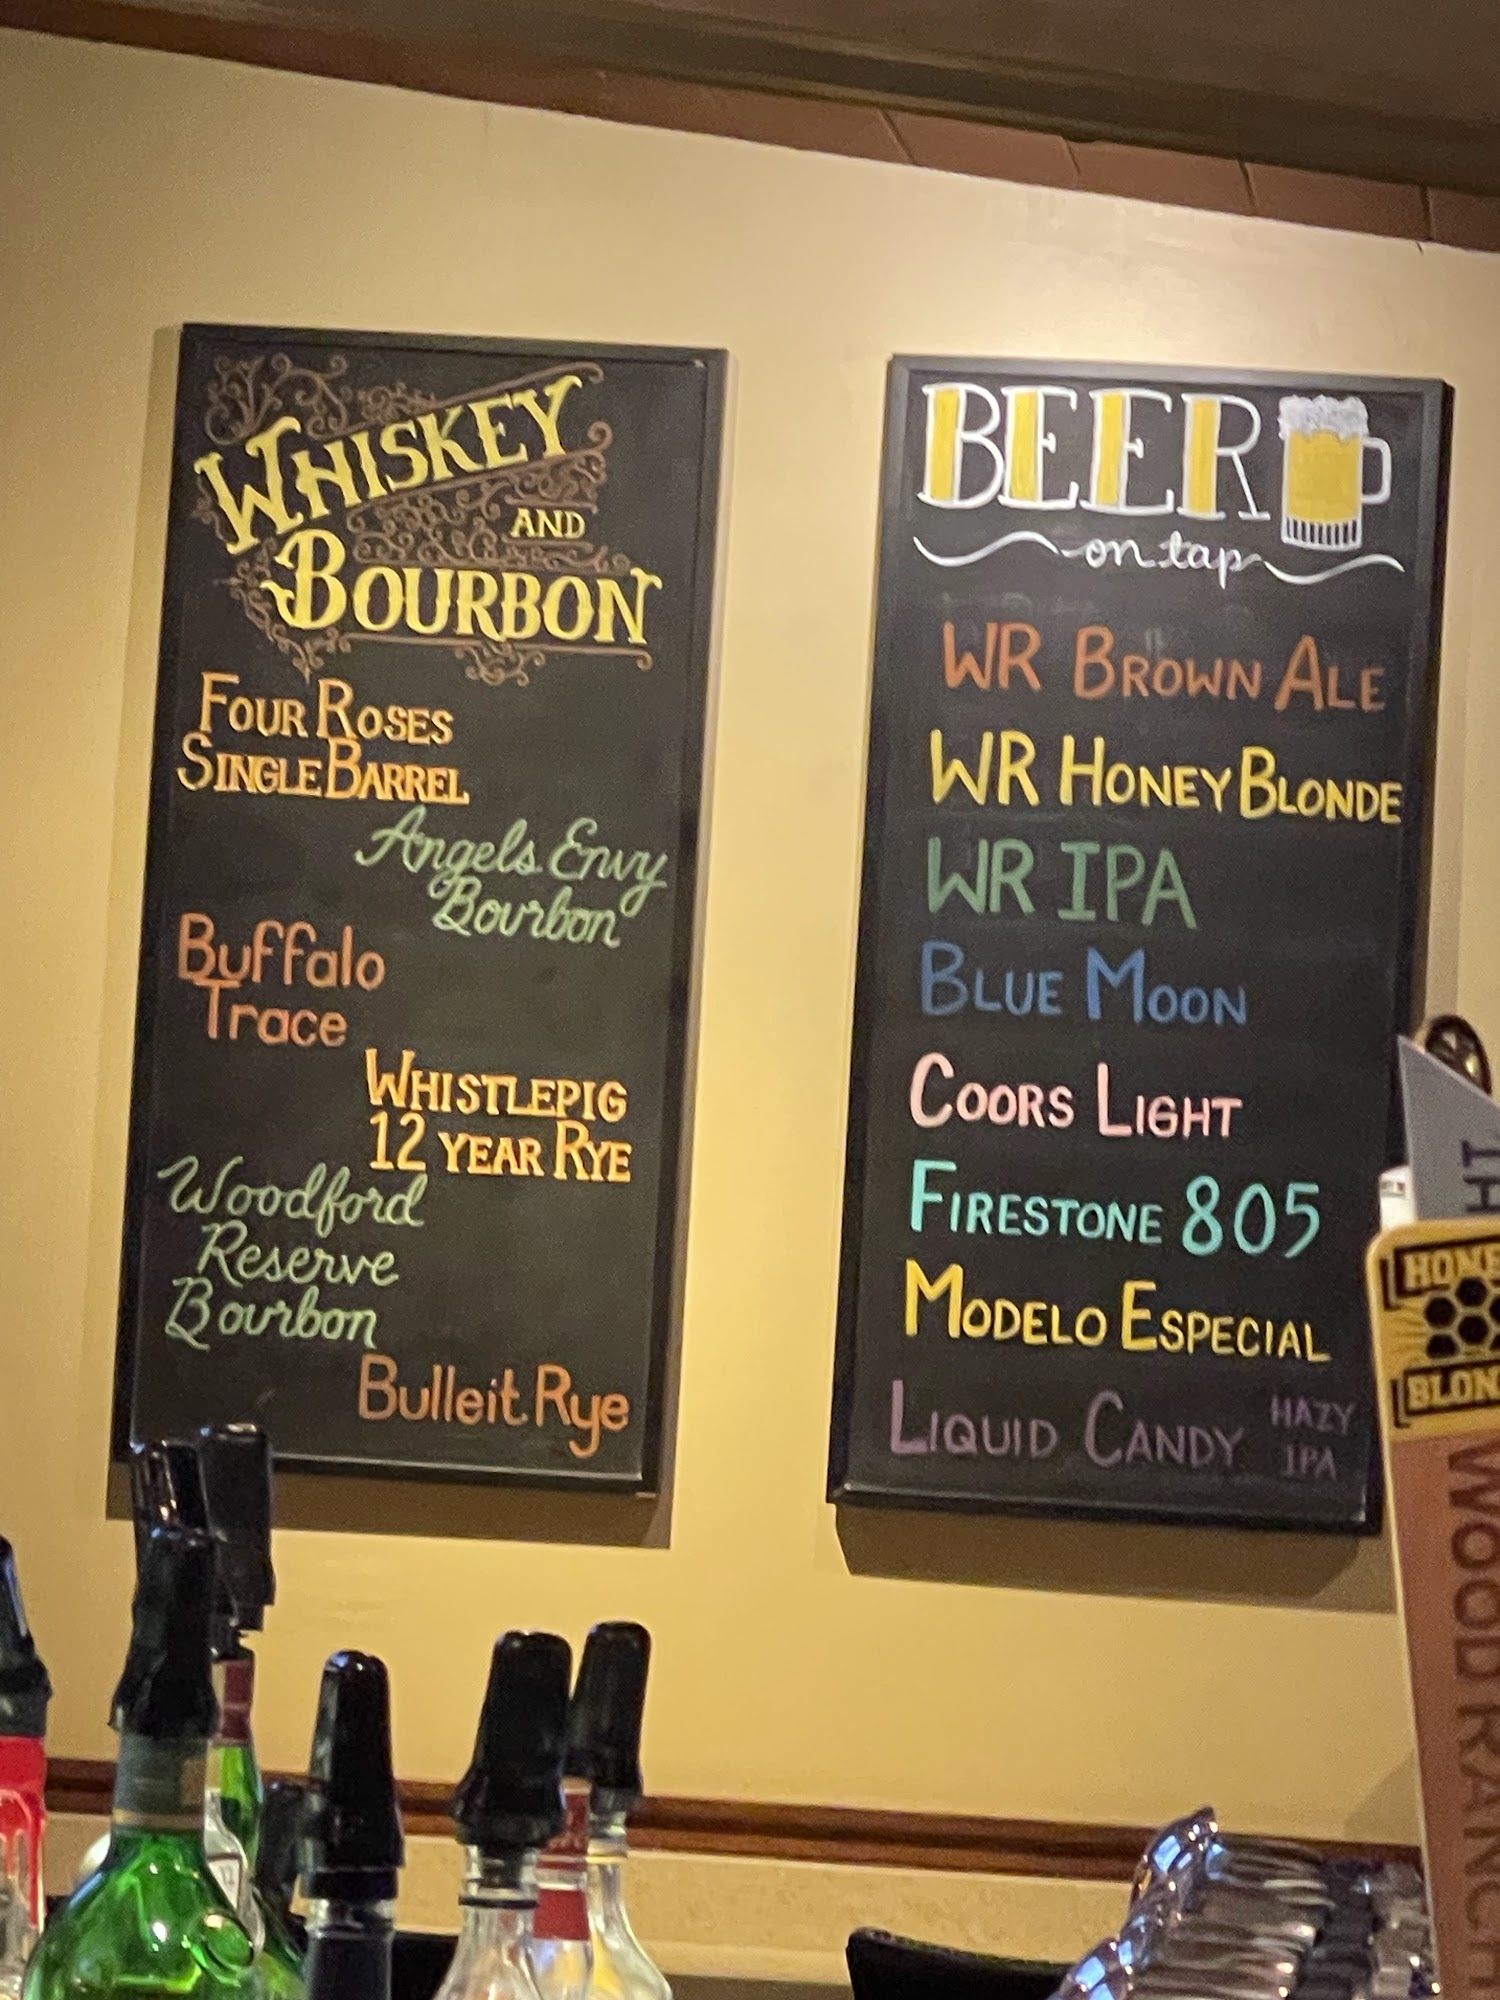 WHISKEY
AND
BOURBON
FOUR ROSES
SINGLE BARREL
Angels Envy
Bourbon
Buffalo
Trace
WHISTLEPIG
12 YEAR RYE
Woodford
Reserve
Bourbon
Bulleit Rye
BEER
on tap
WR BROWN ALE
WR HONEY BLONDE
WR IPA
BLUE MOON
COORS LIGHT
FIRESTONE 805
MODELO ESPECIAL
LIQUID CANDY HAZY
IPA
HONE
BLON
WOOD RANCH